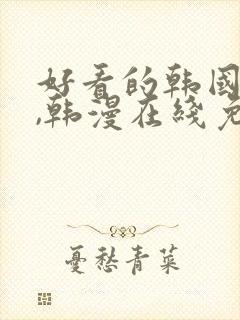 好看的韩国
,韩漫在线免
憂愁青菜